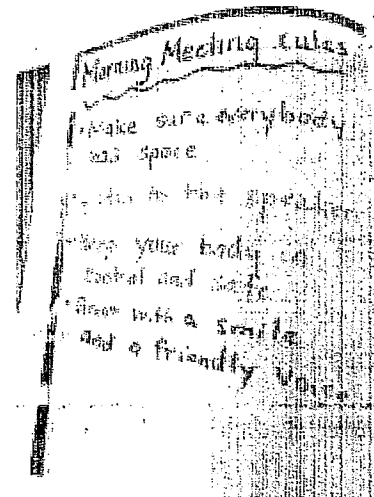 Morning Meeting rules
• Make sure everybody
has space
to the speaker
• Keep your body in
control and safe
with a smile
and a friendly voice.